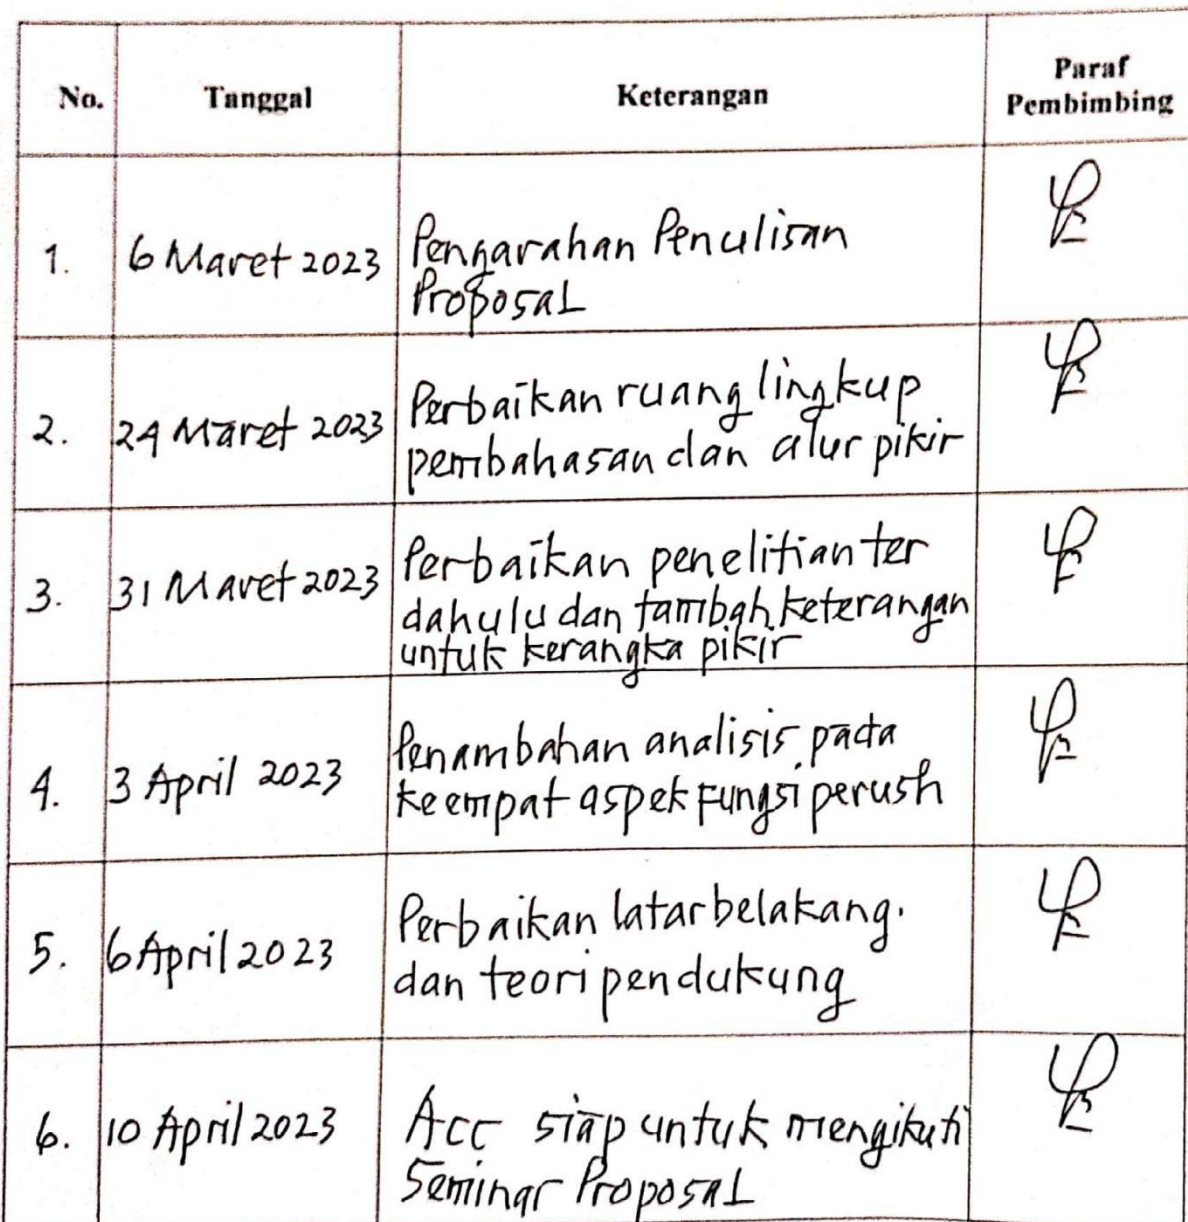 No. Tanggal Keterangan Paraf
Pembimbing
1. 6 Maret 2023 Pengarahan Penulisan
Proposal
2. 24 Maret 2023 Perbaikan ruang lingkup
pembahasan dan alur pikir
3. 31 Maret 2023 Perbaikan penelitian ter
dahulu dan tambah keterangan
untuk kerangka pikir
4. 3 April 2023 Penambahan analisis pada
keempat aspek fungsi perush
5. 6 April 2023 Perbaikan latar belakang.
dan teori pendukung
6. 10 April 2023 Acc siap untuk mengikuti
Seminar Proposal